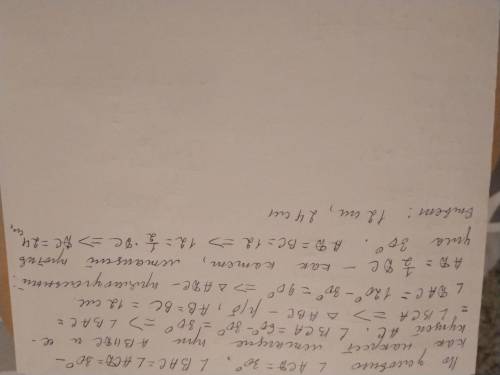 По условию ∠ACD = 30°, ∠BAC = ∠ACD = 30° –
как накрест лежащие при AB || DC и се-
кущей AC. ∠BCA = 60° - 30° = 30° => ∠BAC =
= ∠BCA => △ABC – р/б, AB = BC = 12 см
∠BAC = 120° - 30° = 90° => △ABC – прямоугольный:
AB = 1/2 DC – как катет, лежащий против
угла 30°. AB = BC = 12 => 12 = 1/2 · DC => DC = 24 см,
Ответ: 12 см, 24 см